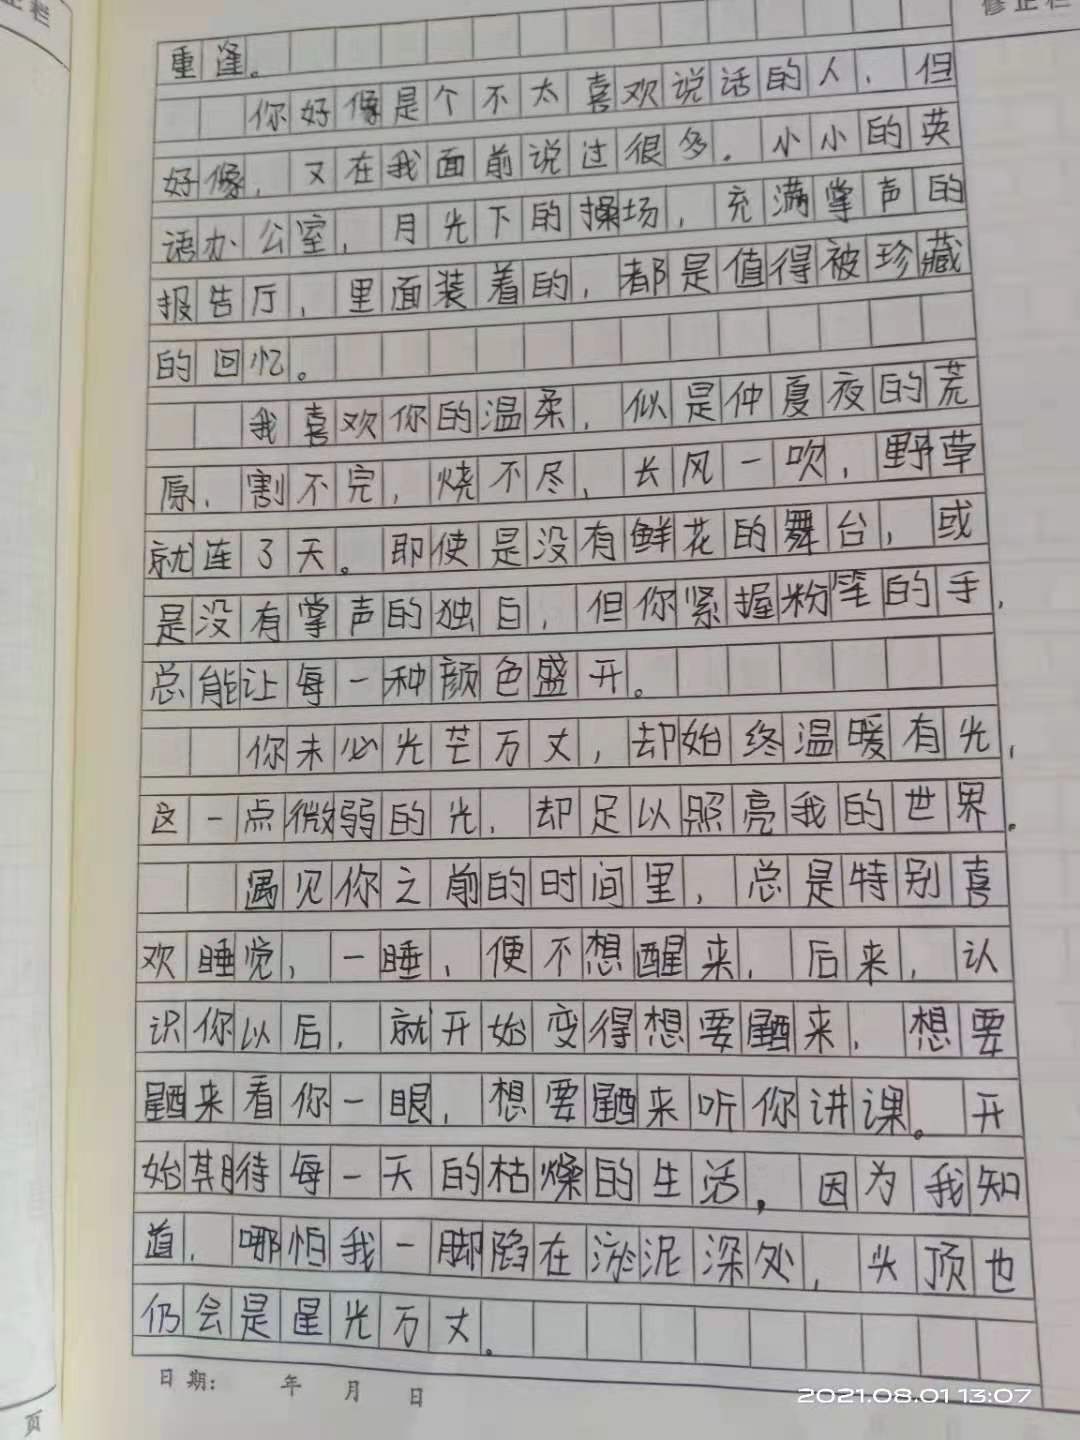 正栏
修正栏
重逢。
你好像是个不太喜欢说话的人，但
好像，又在我面前说过很多。小小的英
语办公室，月光下的操场，充满掌声的
报告厅，里面装着的，都是值得被珍藏
的回忆。
我喜欢你的温柔，似是仲夏夜的荒
原，割不完，烧不尽，长风一吹，野草
就连了天。即使是没有鲜花的舞台，或
是没有掌声的独白，但你紧握粉笔的手，
总能让每一种颜色盛开。
你未必光芒万丈，却始终温暖有光，
这一点微弱的光，却足以照亮我的世界。
遇见你之前的时间里，总是特别喜
欢睡觉，一睡，便不想醒来，后来，认
识你以后，就开始变得想要醒来，想要
醒来看你一眼，想要醒来听你讲课。开
始期待每一天的枯燥的生活，因为我知
道，哪怕我一脚陷在淤泥深处，头顶也
仍会是星光万丈。
日期： 年 月 日
页
2021.08.01 13:07